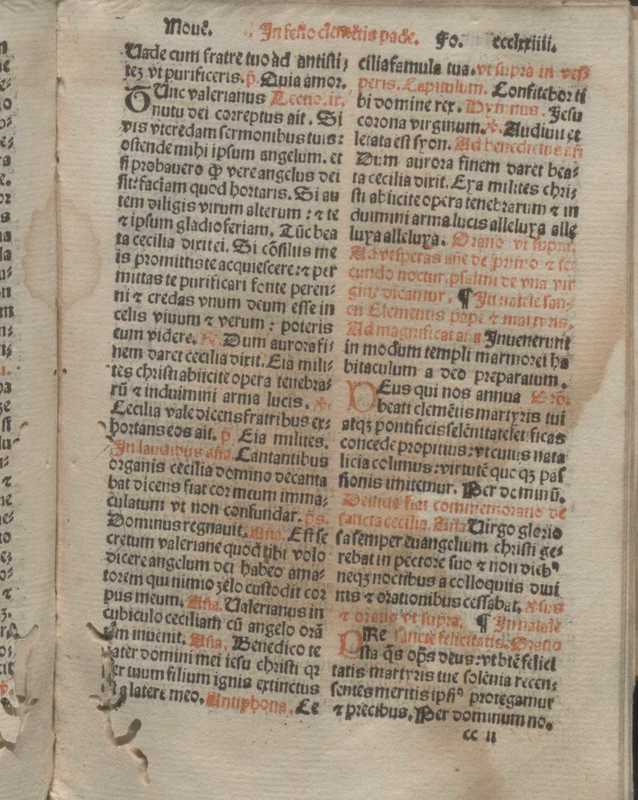 Nouẽ. In festo clemẽtis pape. Fo. ccclxxiiii.
Uade cum fratre tuo ad antisti⸗
tez vt purificeris. p̃. Quia amor.
TUnc valerianus Lectio. ix.
nutu dei correptus ait. Si
vis vt credam sermonibus tuis:
ostende mihi ipsum angelum. et
si probauero ꝙ vere angelus dei
sit: faciam quod hortaris. Si au
tem diligis virum alterum: ⁊ te
⁊ ipsum gladio feriam. Tũc bea
ta cecilia dixit ei. Si cõsiliis me
is promittis te acquiescere: ⁊ per
mittas te purificari fonte peren⸗
ni ⁊ credas vnum deum esse in
celis viuum ⁊ verum: poteris
eum videre. ℟. Dum aurora fi⸗
nem daret cecilia dixit. Eia mili⸗
tes christi abiicite opera tenebra⸗
rũ ⁊ induimini arma lucis. ℣.
Cecilia vale dicens fratribus ex⸗
hortans eos ait. p̃. Eia milites.
In laudibus añа. Cantantibus
organis cecilia domino decanta
bat dicens fiat cor meum imma⸗
culatum vt non confundar. p̃s.
Dominus regnauit. Aña. Est se
cretum valeriane quod tibi volo
dicere angelum dei habeo ama⸗
torem qui nimio zelo custodit cor
pus meum. Aña. Valerianus in
cubiculo ceciliam cũ angelo orã
tem inuenit. Aña. Benedico te
pater domini mei iesu christi qr
per tuum filium ignis extinctus
est a latere meo. Antiphona. Ce
cilia famula tua. vt supra in ves⸗
peris. Capitulum. Confitebor ti
bi domine rex. Hymnus. Jesu
corona virginum. ℣. Audiuit et
letata est syon. Ad benedictus añ
Dum aurora finem daret bea⸗
ta cecilia dixit. Eya milites chri⸗
sti abiicite opera tenebrarum ⁊ in
duimini arma lucis alleluya alle
luya alleluya. Oratio vt supra.
Ad vesperas añe de primo ⁊ se
cundo noctur. psalmi de vna vir
gine dicantur. ¶ In natale san⸗
cti Clementis pape ⁊ martyris.
Ad magnificat aña Inuenerunt
in modum templi marmorei ha
bitaculum a deo preparatum.
DEus qui nos annua Orõ.
beati clemẽtis martyris tui
atqz pontificis solẽnitate letificas
concede propitius: vt cuius nata
licia colimus: virtutẽ quoqz pas
sionis imitemur. Per dominũ.
Deinde fiat commemoratio de
sancta cecilia. Aña Virgo glorio
sa semper euangelium christi ge⸗
rebat in pectore suo ⁊ non dieb9
neqz noctibus a colloquiis diui
nis ⁊ orationibus cessabat. ℣sus
⁊ oratio vt supra. ¶ In natale
PRe sancte felicitatis. Oratio
sta q̃s op̃s deus: vt btẽ felici
tatis martyris tue solẽnia recen⸗
sentes meritis ipsi9 protegamur
⁊ precibus. Per dominum no.
cc ii